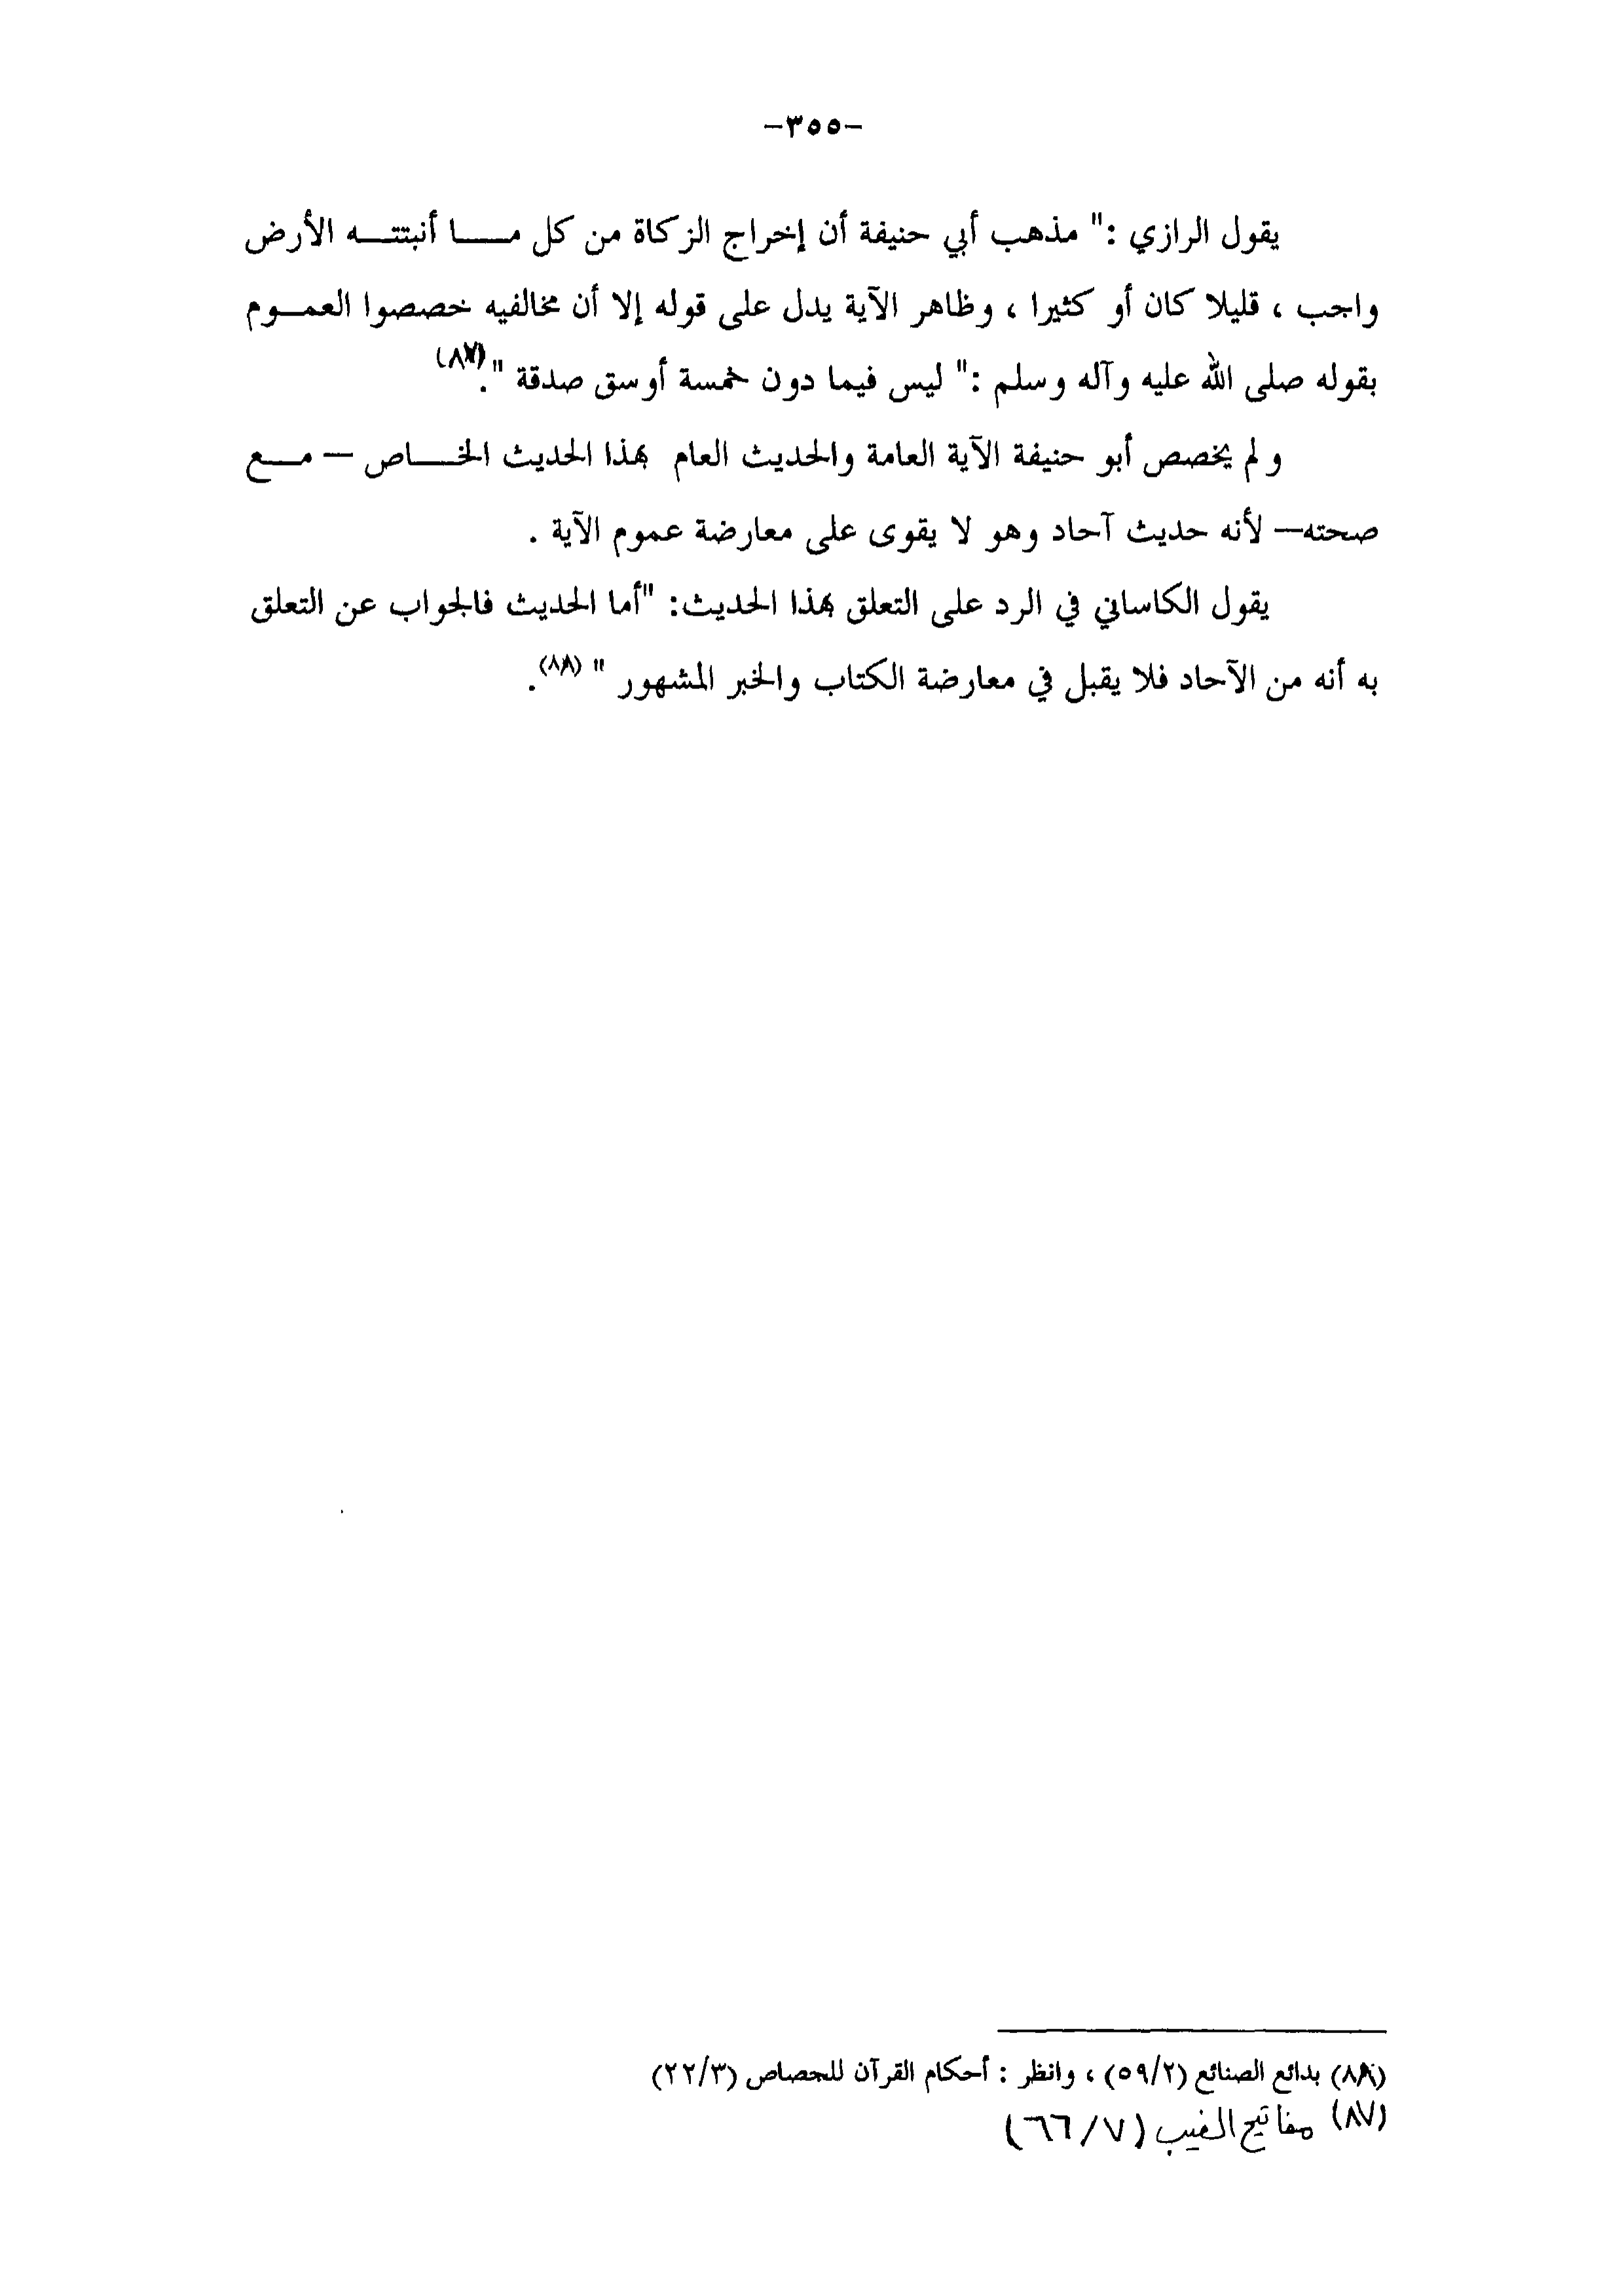 -٣٥٥-
يقول الرازي :" مذهب أبي حنيفة أن إخراج الزكاة من كل مــــا أنبتتــه الأرض
واجب ، قليلا كان أو كثيرا ، وظاهر الآية يدل على قوله إلا أن مخالفيه خصصوا العمــوم
بقوله صلى الله عليه وآله وسلم :" ليس فيما دون خمسة أوسق صدقة ".(٨٧)
و لم يخصص أبو حنيفة الآية العامة والحديث العام بهذا الحديث الخــــاص – مــع
صحته– لأنه حديث آحاد وهو لا يقوى على معارضة عموم الآية .
يقول الكاساني في الرد على التعلق بهذا الحديث: "أما الحديث فالجواب عن التعلق
به أنه من الآحاد فلا يقبل في معارضة الكتاب والخبر المشهور " (٨٨).
(٨٨) بدائع الصنائع (٥٩/٢) ، وانظر : أحكام القرآن للجصاص (٢٢/٣)
(٨٧) مفاتيح الغيب (٦٦/٧)